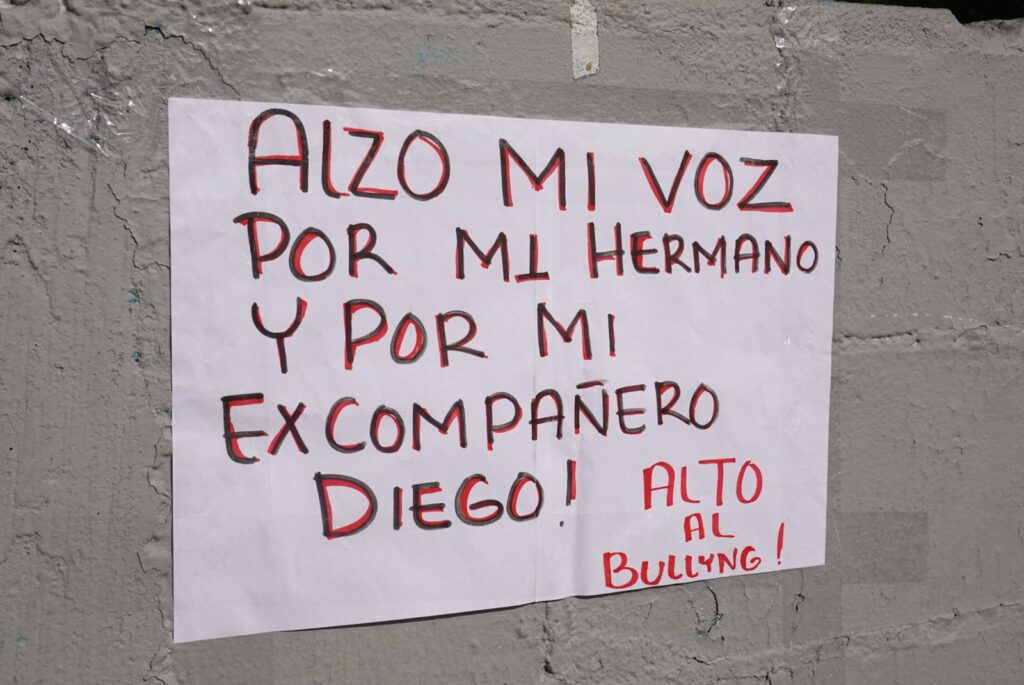 ALZO MI VOZ
POR MI HERMANO
Y POR MI
EXCOMPAÑERO
DIEGO!
ALTO
AL
BULLYNG!